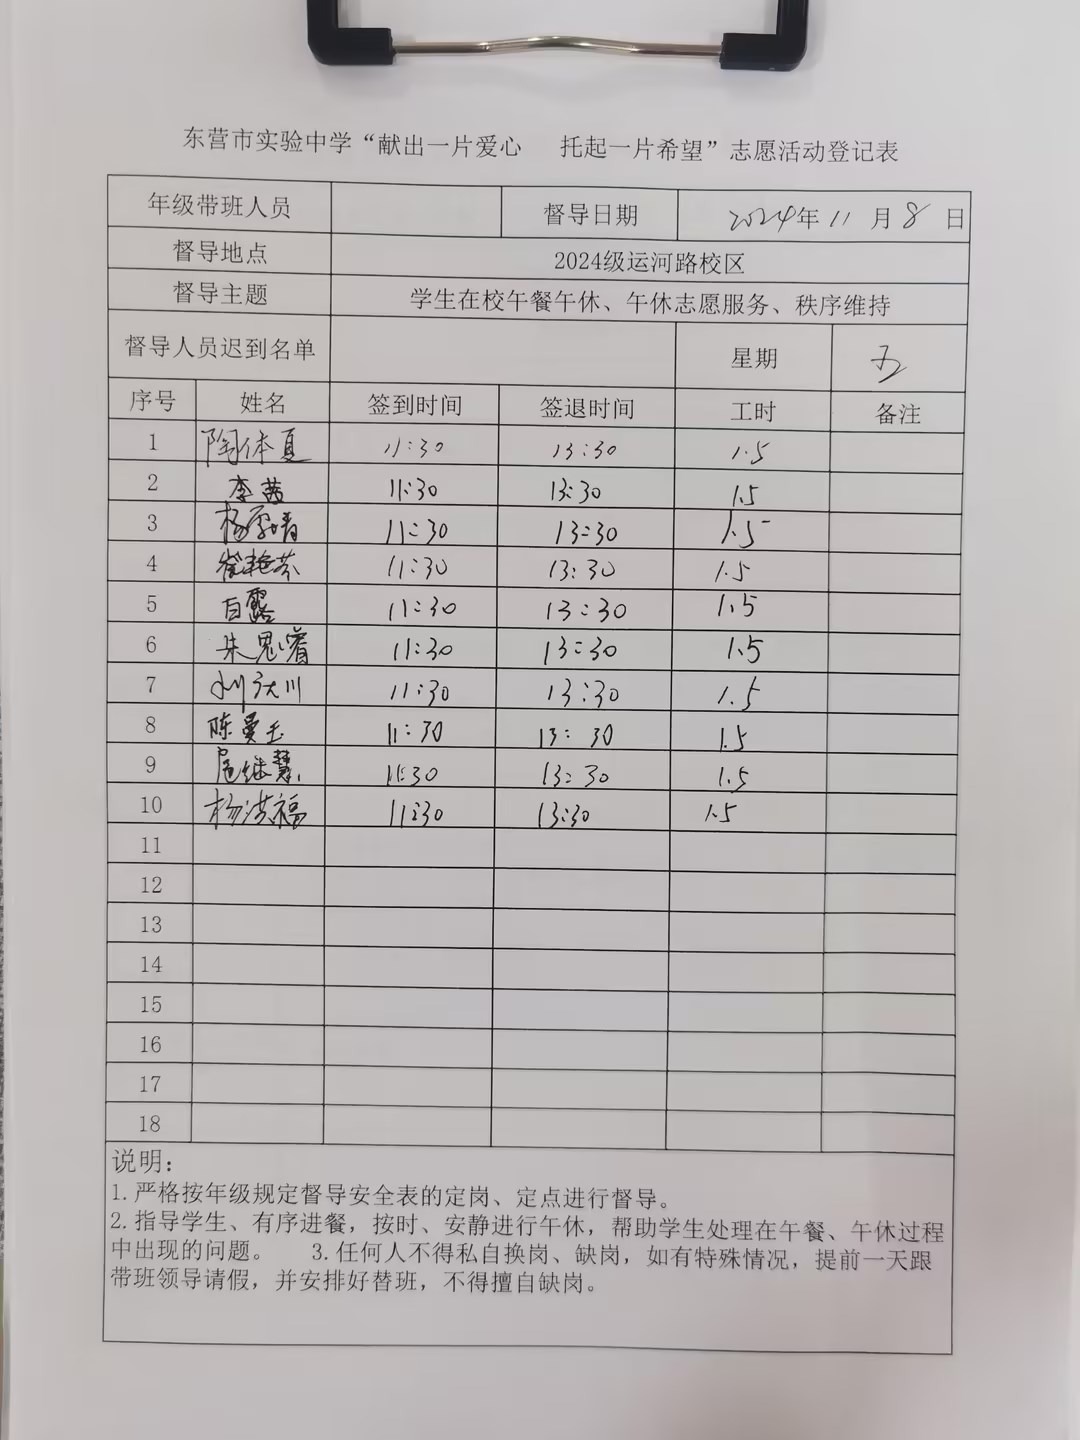 东营市实验中学“献出一片爱心 托起一片希望”志愿活动登记表
年级带班人员 督导日期 2024年 11 月 8 日
督导地点 2024级运河路校区
督导主题 学生在校午餐午休、午休志愿服务、秩序维持
督导人员迟到名单 星期 五
序号 姓名 签到时间 签退时间 工时 备注
1 陶体夏 11:30 13:30 1.5
2 李茜 11:30 13:30 1.5
3 11:30 13:30 1.5
4 崔艳芬 11:30 13:30 1.5
5 白露 11:30 13:30 1.5
6 朱思睿 11:30 13:30 1.5
7 11:30 13:30 1.5
8 陈曼玉 11:30 13:30 1.5
9 扈继慧 11:30 13:30 1.5
10 杨洪福 11:30 13:30 1.5
11
12
13
14
15
16
17
18
说明：
1.严格按年级规定督导安全表的定岗、定点进行督导。
2.指导学生、有序进餐，按时、安静进行午休，帮助学生处理在午餐、午休过程
中出现的问题。 3.任何人不得私自换岗、缺岗，如有特殊情况，提前一天跟
带班领导请假，并安排好替班，不得擅自缺岗。